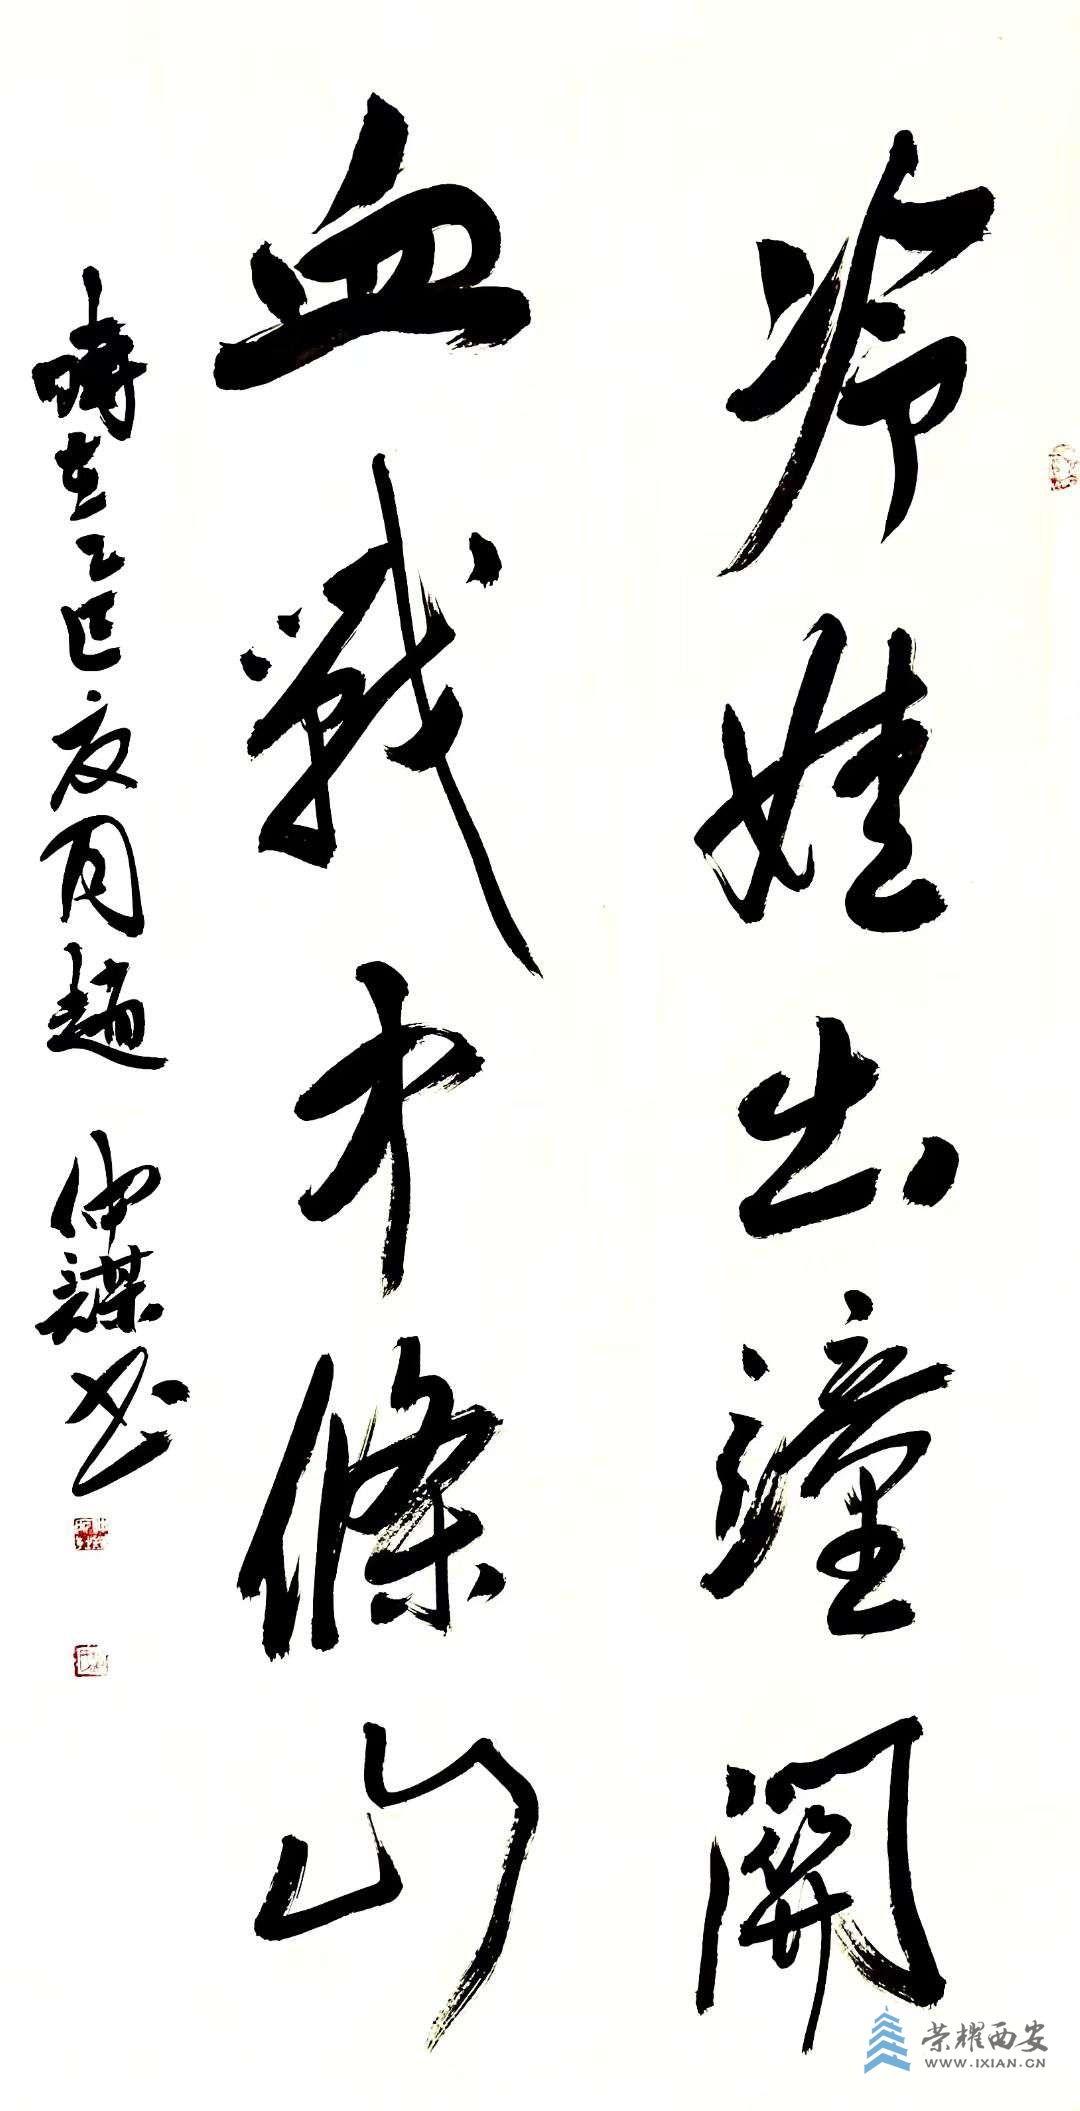 冷娃出潼關
血戰中條山
時在乙巳夏月趙仲謀书
荣耀西安
WWW.IXIAN.CN